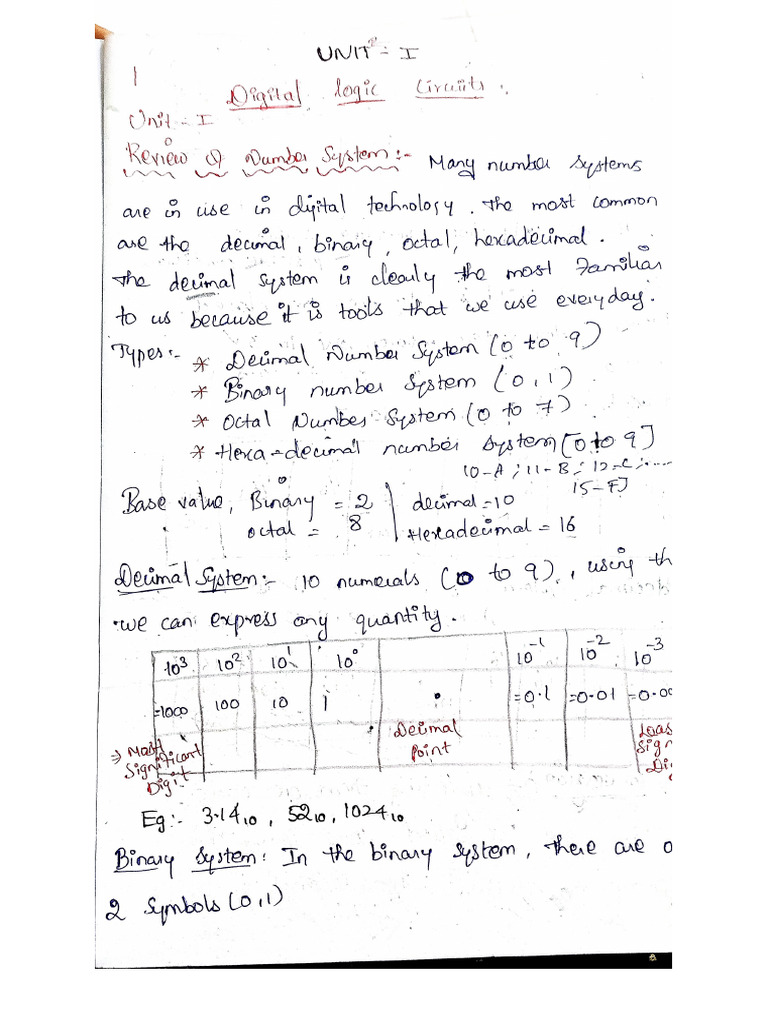 UNIT - I
1
Digital Logic Circuits :-
Unit - I
Review of Number System :- Many number systems
are in use in digital technology. The most common
are the decimal, binary, octal, hexadecimal.
The decimal system is clearly the most Familiar
to us because it is tools that we use everyday.
Types :- * Decimal Number System (0 to 9)
* Binary number System (0,1)
* Octal Number System (0 to 7)
* Hexa-decimal number System [0 to 9]
10-A ; 11-B ; 12-C ; ....
15-F]
Base value, Binary = 2 | decimal = 10
octal = 8 | Hexadecimal = 16
Decimal System :- 10 numerals (0 to 9), using th
we can express any quantity.
10³ 10² 10¹ 10⁰ 10⁻¹ 10⁻² 10⁻³
=1000 100 10 1 • =0.1 =0.01 =0.00
⇒ Most Significant Digit Decimal Point Leas Sign Di
Eg :- 3.14₁₀ , 52₁₀ , 1024₁₀
Binary System : In the binary system, there are o
2 Symbols (0,1)